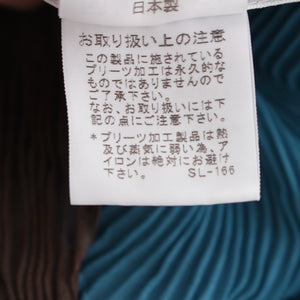 日本製
お取り扱い上の注意
この製品に施されている
プリーツ加工は永久的な
ものではありませんので
ご了承下さい。
なお、お取り扱いには下
記の点にご注意下さい。
*プリーツ加工製品は熱
及び蒸気に弱い為、ア
イロンは絶対にお避け
下さい。 SL-166